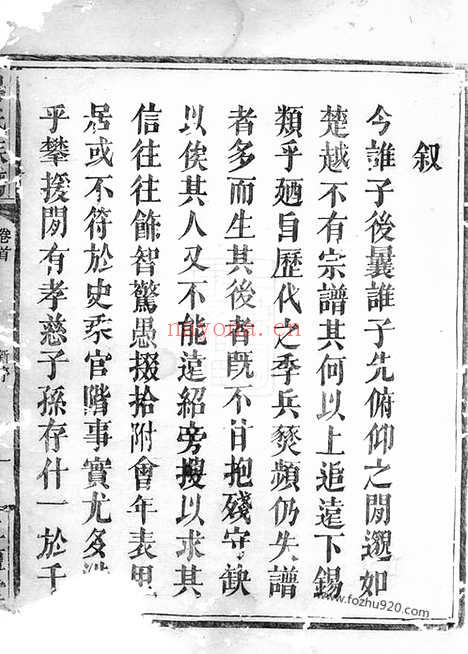 叙
今誰子後曩誰子先俯仰之閒邈如
楚越不有宗譜其何以上追遠下錫
類乎廼自歷代之季兵燹頻仍失譜
者多而生其後者既不甘抱殘守缺
以俟其人又不能遠紹旁搜以求其
信往往飾智驚愚掇拾附會年表里
居或不符於史乘官階事實尤多
乎攀援閒有孝慈子孫存什一於千
卷首
新序
一
nayona.cn
www.fozhu920.com